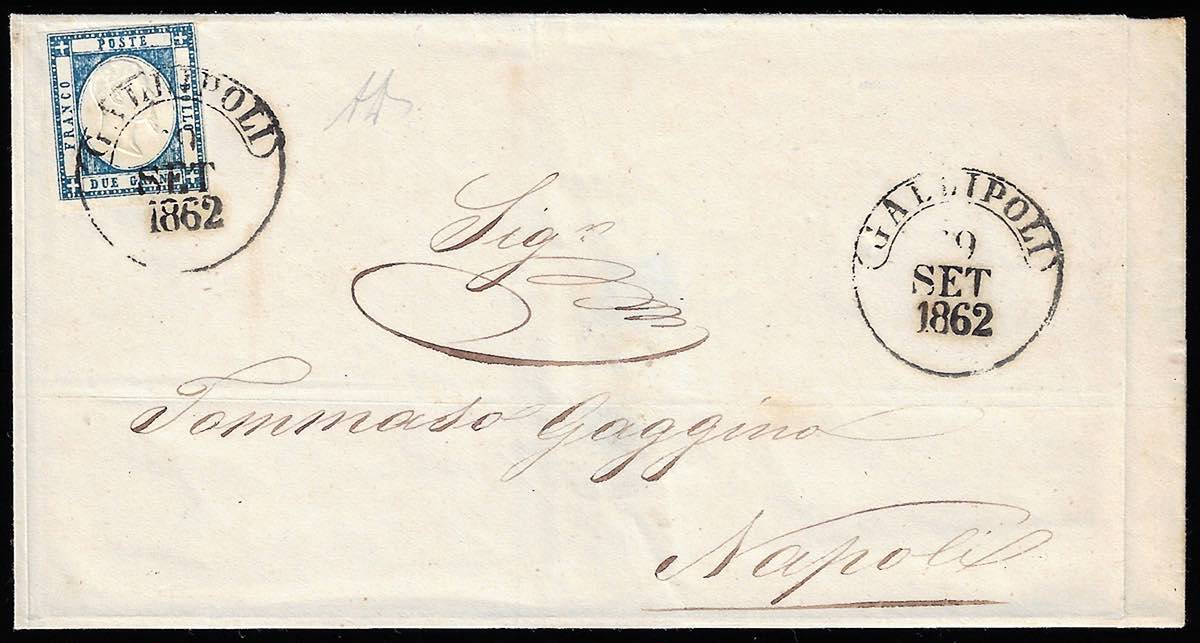 POSTE
FRANCO
BOLLO
DUE GRANA
GALLIPOLI
SET
1862
GALLIPOLI
9
SET
1862
Sigr
Tommaso Gaggino
Napoli